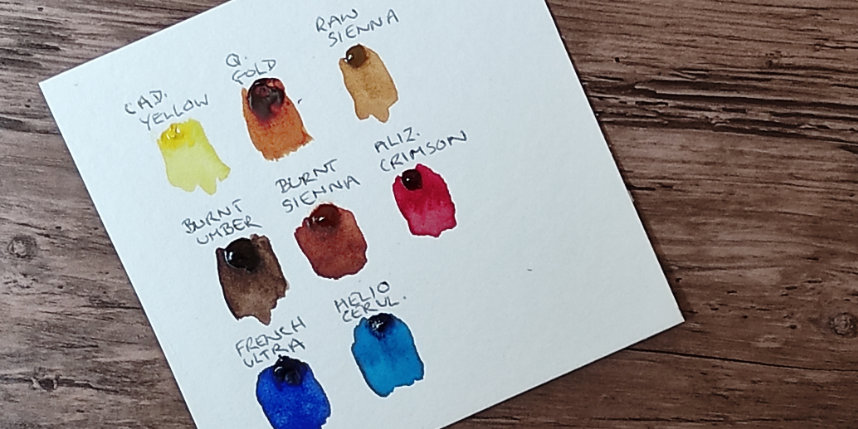 CAD.
YELLOW
Q.
GOLD
RAW
SIENNA
BURNT
UMBER
BURNT
SIENNA
ALIZ.
CRIMSON
FRENCH
ULTRA
HELIO
CERUL.